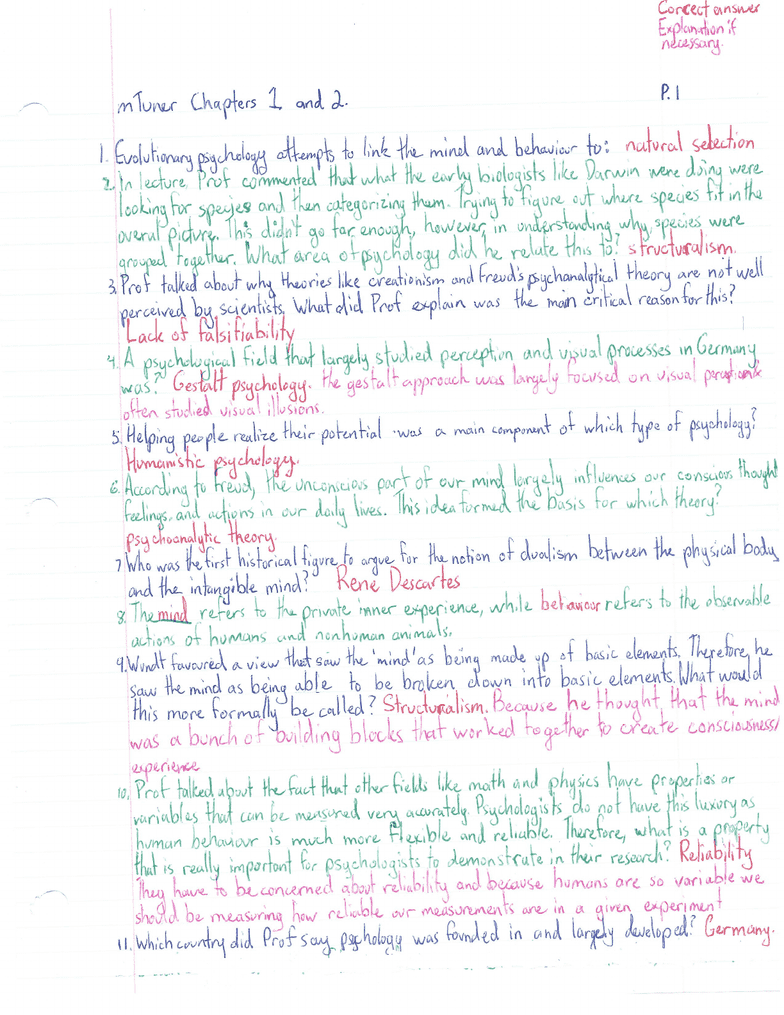 Correct answer
Explanation if
necessary.
mTuner Chapters 1 and 2.
P.1
1. Evolutionary psychology attempts to link the mind and behaviour to: natural selection
2. In lecture Prof commented that what the early biologists like Darwin were doing were
looking for species and then categorizing them. Trying to figure out where species fit in the
overal picture. This didn't go far enough, however, in understanding why species were
grouped together. What area of psychology did he relate this to? structuralism.
3. Prof talked about why theories like creationism and Freud's psychanalytical theory are not well
perceived by scientists. What did Prof explain was the main critical reason for this?
Lack of falsifiability
4. A psychological field that largely studied perception and visual processes in Germany
was? Gestalt psychology. the gestalt approach was largely focused on visual perception &
often studied visual illusions.
5. Helping people realize their potential was a main component of which type of psychology?
Humanistic psychology.
6. According to Freud, the unconicious part of our mind largely influences our conscious thought
feelings, and actions in our daily lives. This idea formed the basis for which theory?
psychoanalytic theory.
7 Who was the first historical figure to argue for the notion of dualism between the physical body
and the intangible mind? René Descartes
8. The mind refers to the private inner experience, while behaviour refers to the observable
actions of humans and nonhuman animals.
9. Wundt favoured a view that saw the 'mind' as being made up of basic elements. Therefore, he
saw the mind as being able to be broken down into basic elements. What would
this more formally be called? Structuralism. Because he thought that the mind
was a bunch of building blocks that worked together to create consciousness/
experience
10. Prof talked about the fact that other fields like math and physics have properties or
variables that can be measured very accurately. Psychologists do not have this luxury as
human behaviour is much more flexible and reliable. Therefore, what is a property
that is really important for psychologists to demonstrate in their research? Reliability
They have to be concerned about reliability and because humans are so variable we
should be measuring how reliable our measurements are in a given experiment
11. Which country did Prof say psychology was founded in and largely developed? Germany.